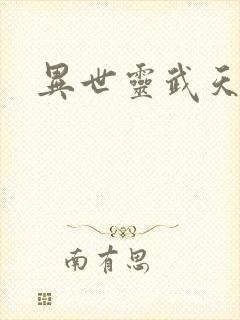 異世靈武天
南有思